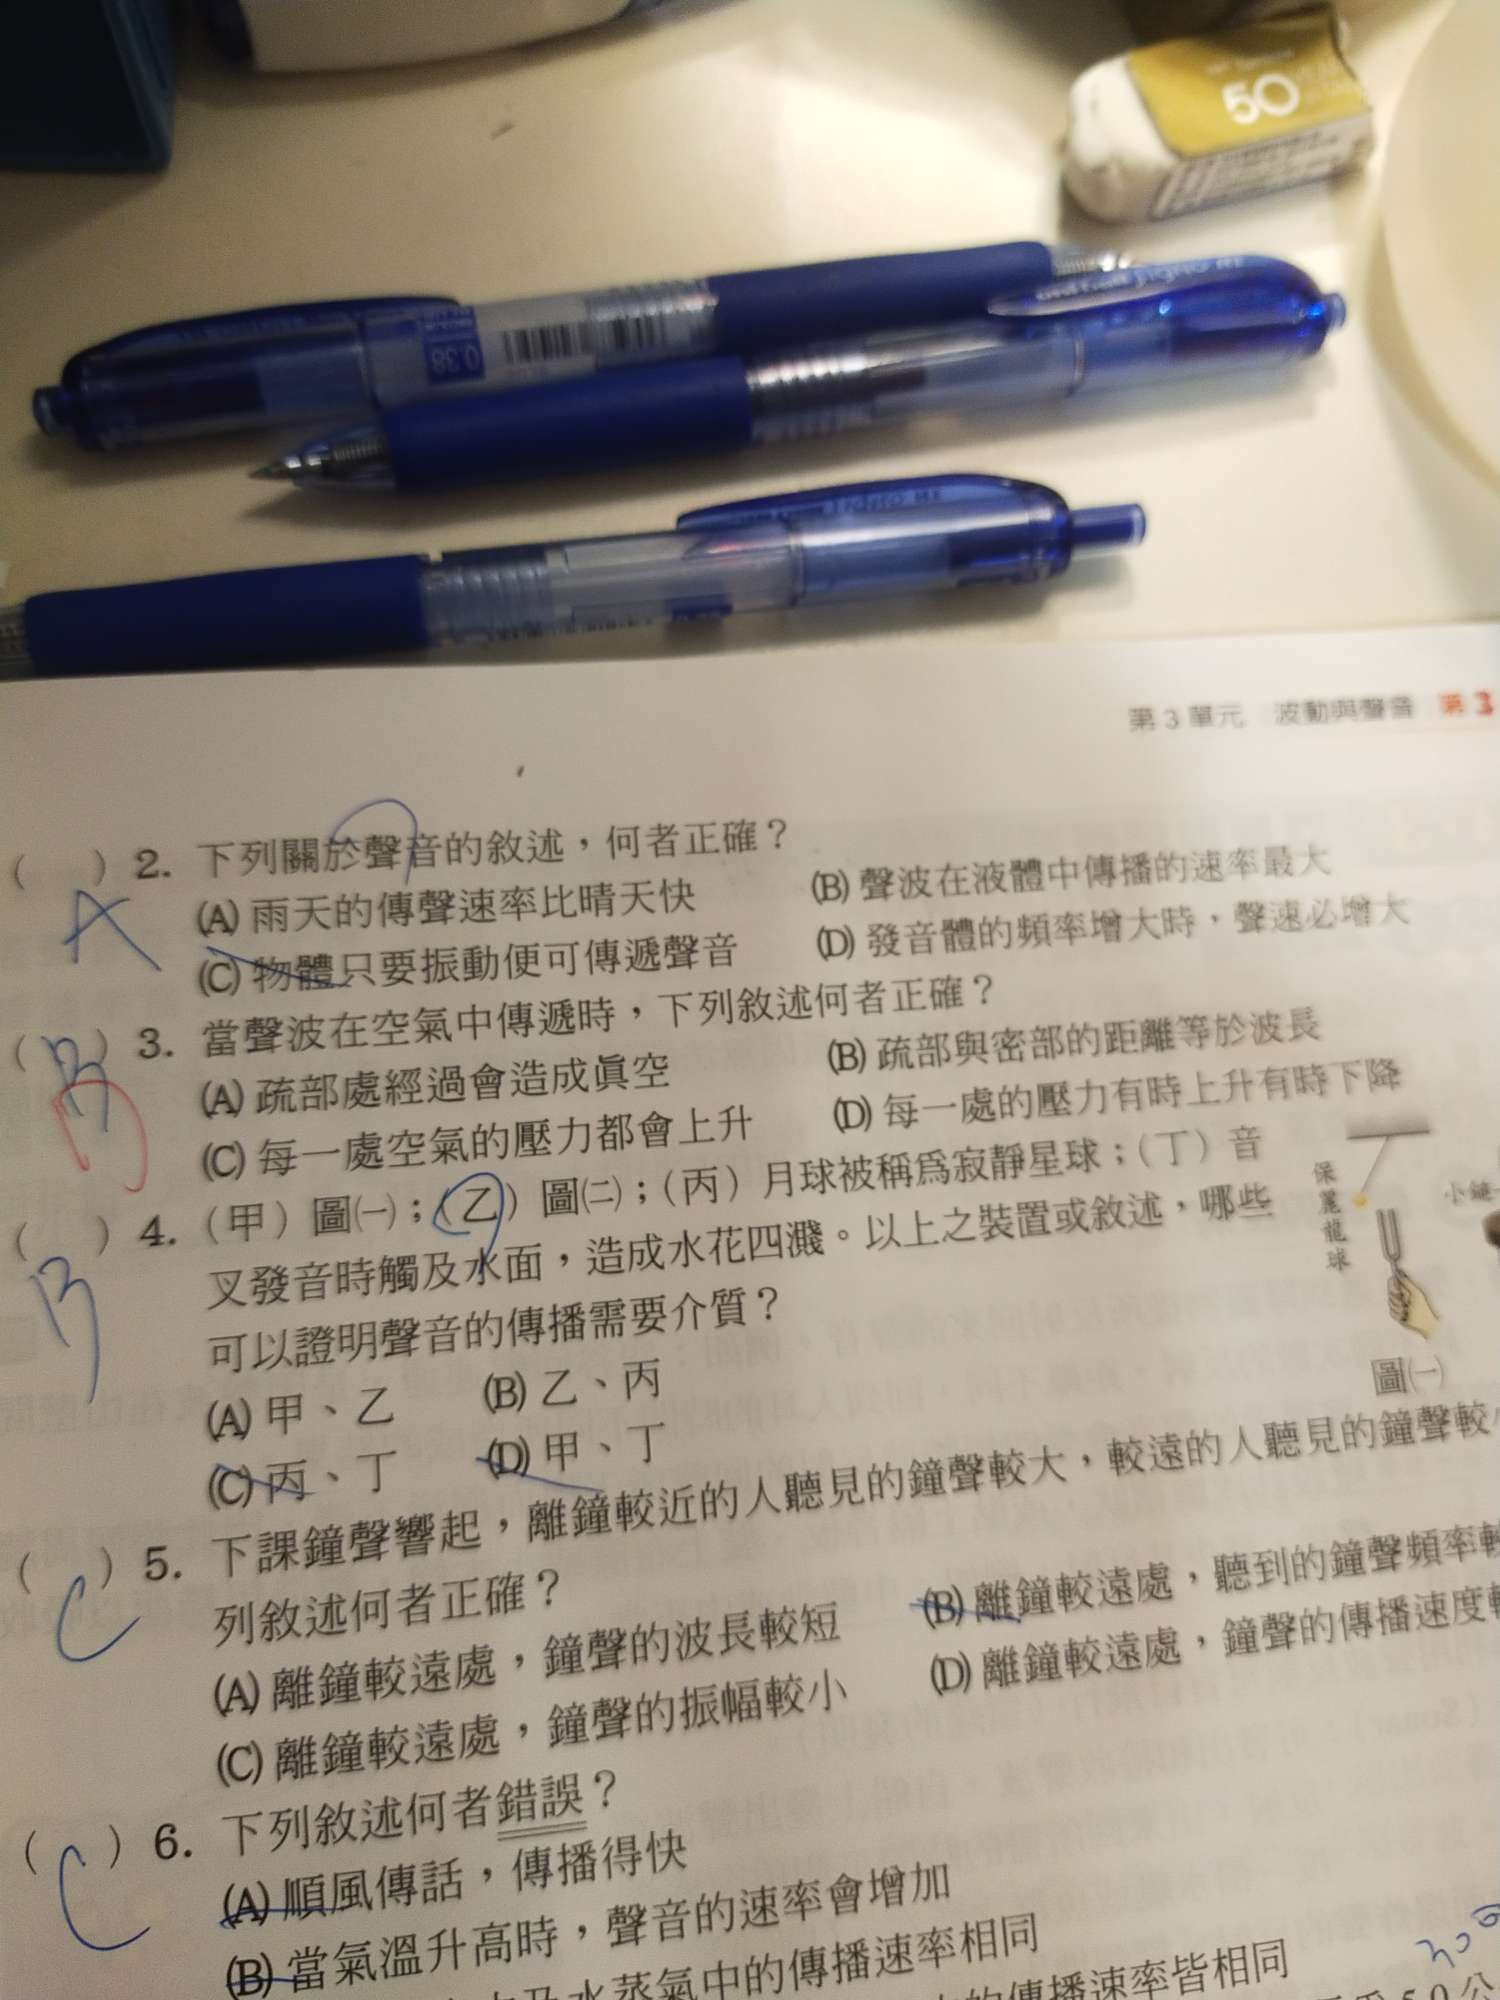 50
0.38
第3單元 波動與聲音 第3
( ) 2. 下列關於聲音的敘述，何者正確？
A
(A) 雨天的傳聲速率比晴天快 (B) 聲波在液體中傳播的速率最大
(C) 物體只要振動便可傳遞聲音 (D) 發音體的頻率增大時，聲速必增大
( B ) 3. 當聲波在空氣中傳遞時，下列敘述何者正確？
(A) 疏部處經過會造成真空 (B) 疏部與密部的距離等於波長
(C) 每一處空氣的壓力都會上升 (D) 每一處的壓力有時上升有時下降
( ) 4. （甲）圖㈠；（乙）圖㈡；（丙）月球被稱為寂靜星球；（丁）音
B
叉發音時觸及水面，造成水花四濺。以上之裝置或敘述，哪些
可以證明聲音的傳播需要介質？
(A) 甲、乙 (B) 乙、丙
(C) 丙、丁 (D) 甲、丁
保麗龍球
小鎚
圖㈠
( ) 5. 下課鐘聲響起，離鐘較近的人聽見的鐘聲較大，較遠的人聽見的鐘聲較
C
列敘述何者正確？
(A) 離鐘較遠處，鐘聲的波長較短 (B) 離鐘較遠處，聽到的鐘聲頻率較
(C) 離鐘較遠處，鐘聲的振幅較小 (D) 離鐘較遠處，鐘聲的傳播速度較
( ) 6. 下列敘述何者錯誤？
C
(A) 順風傳話，傳播得快
(B) 當氣溫升高時，聲音的速率會增加
水蒸氣中的傳播速率相同
的傳播速率皆相同
50公